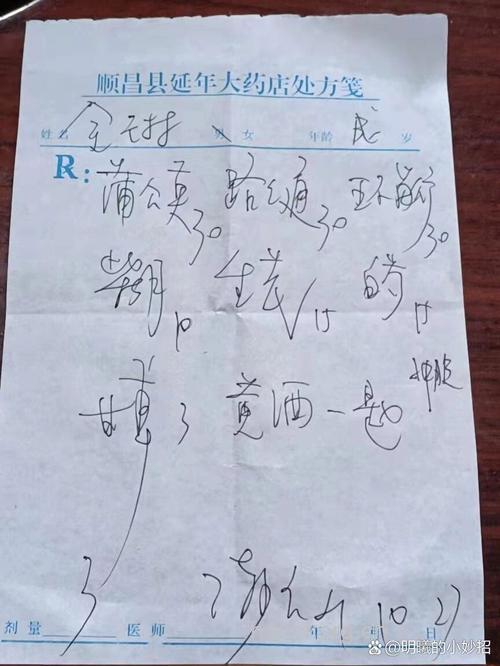 顺昌县延年大药店处方笺
姓名 男 女 年龄 成 岁
R:
蒲公英30 路路通30 王不留行30
柴胡10 生芪15 白芍15
甘草3 黄酒一匙 冲服
剂量 3 医师 年 10月 27日
@明曦的小妙招